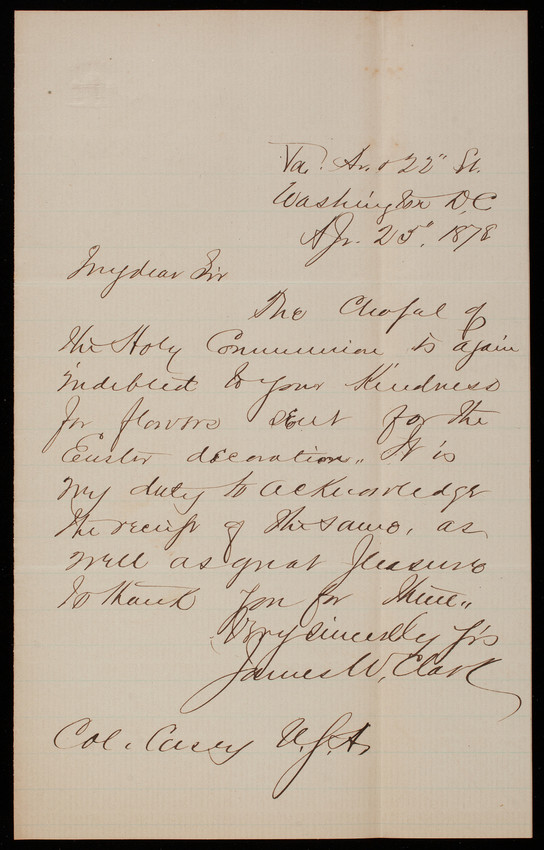 Va. Av. & 22" St.
Washington D.C.
Apr. 25", 1878
My dear Sir
The Chapel of
the Holy Communion is again
indebted to your kindness
for flowers sent for the
Easter decoration. It is
my duty to acknowledge
the receipt of the same, as
well as great pleasure
to thank you for them.
Very sincerely y'rs
James W. Clark
Col. Casey U.S.A.